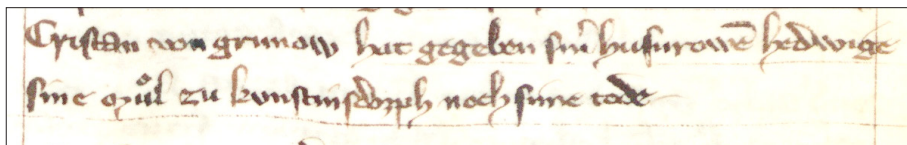 Cristan von grunow hat gegeben sin̄ husurowē hedwige
sine můl zu kunstinsdorph noch sine tode